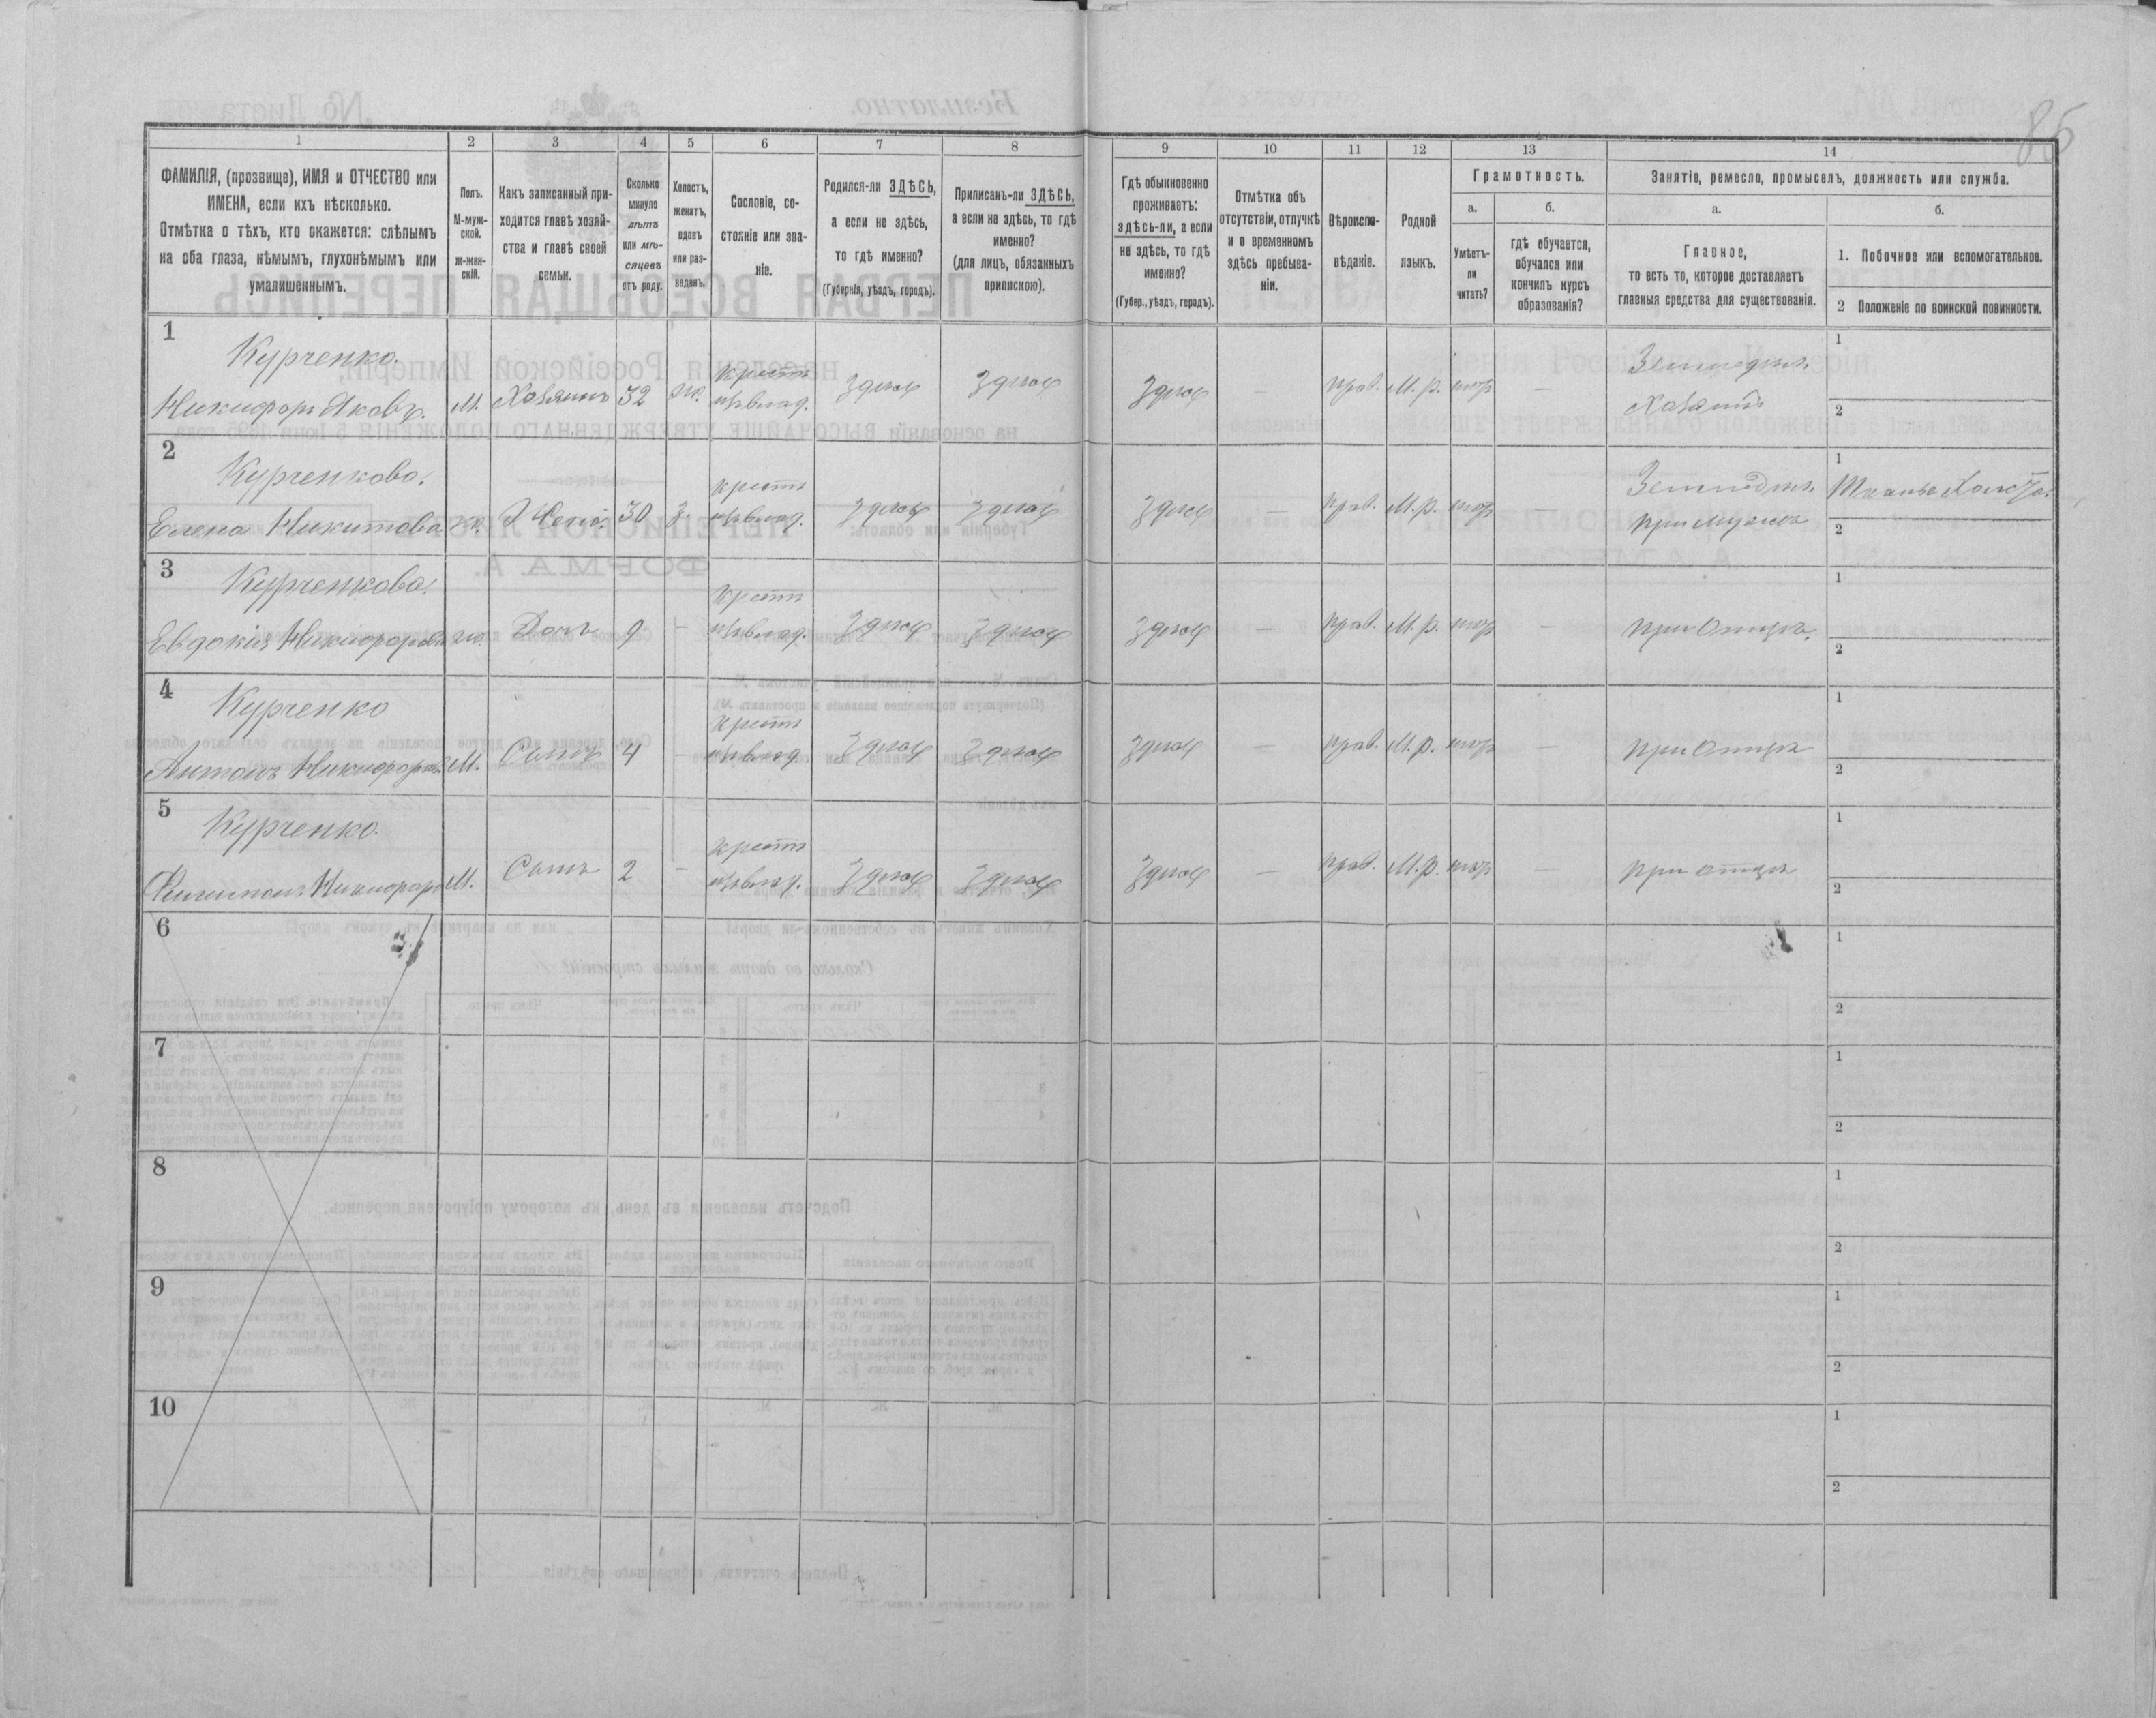 85
1
2
3
4
5
6
7
8
9
10
11
12
13
14
ФАМИЛІЯ, (прозвище), ИМЯ и ОТЧЕСТВО или
ИМЕНА, если ихъ нѣсколько.
Отмѣтка о тѣхъ, кто окажется: слѣпымъ
на оба глаза, нѣмымъ, глухонѣмымъ или
умалишеннымъ.
Полъ.
М-муж-
ской.
ж-жен-
скій.
Какъ записанный при-
ходится главѣ хозяй-
ства и главѣ своей
семьи.
Сколько
минуло
лѣтъ
или мѣ-
сяцевъ
отъ роду.
Холостъ,
женатъ,
вдовъ
или раз-
веденъ.
Сословіе, со-
стояніе или зва-
ніе.
Родился-ли ЗДѢСЬ,
а если не здѣсь,
то гдѣ именно?
(Губернія, уѣздъ, городъ).
Приписанъ-ли ЗДѢСЬ,
а если не здѣсь, то гдѣ
именно?
(для лицъ, обязанныхъ
припискою).
Гдѣ обыкновенно
проживаетъ:
здѣсь-ли, а если
не здѣсь, то гдѣ
именно?
(Губер., уѣздъ, городъ).
Отмѣтка объ
отсутствіи, отлучкѣ
и о временномъ
здѣсь пребыва-
ніи.
Вѣроиспо-
вѣданіе.
Родной
языкъ.
Грамотность.
а.
Умѣетъ-
ли
читать?
б.
гдѣ обучается,
обучался или
кончилъ курсъ
образованія?
Занятіе, ремесло, промыселъ, должность или служба.
а.
Главное,
то есть то, которое доставляетъ
главныя средства для существованія.
б.
1. Побочное или вспомогательное.
2 Положеніе по воинской повинности.
1
Курченко.
Никифоръ Яковъ. М. Хозяинъ 32 ж. крест. Здѣсь Здѣсь Здѣсь — прав. М. р. — Земледѣл. Хозяинъ
1
2
2
Курченкова.
Елена Никитова ж. Жена 30 З. крест. Здѣсь Здѣсь Здѣсь — прав. М. р. — Земледѣл. при мужѣ
1 Тканье Холста.
2
3
Курченкова.
Евдокія Никифорова ж. Дочь 9 — крест. Здѣсь Здѣсь Здѣсь — прав. М. р. — при Отцѣ.
1
2
4
Курченко
Антонъ Никифоров. М. Сынъ 4 — крест. Здѣсь Здѣсь Здѣсь — прав. М. р. — при Отцѣ
1
2
5
Курченко.
Филимонъ Никифоров М. Сынъ 2 — крест. Здѣсь Здѣсь Здѣсь — прав. М. р. — при отцѣ
1
2
6
1
2
7
1
2
8
1
2
9
1
2
10
1
2